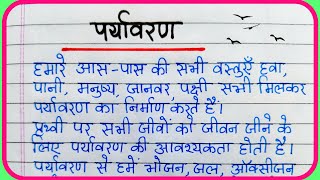 पर्यावरण
हमारे आस-पास की सभी वस्तुएँ हवा,
पानी, मनुष्य, जानवर, पक्षी सभी मिलकर
पर्यावरण का निर्माण करते हैं।
पृथ्वी पर सभी जीवों को जीवन जीने के
लिए पर्यावरण की आवश्यकता होती हैं।
पर्यावरण से हमें भोजन, जल, ऑक्सीजन